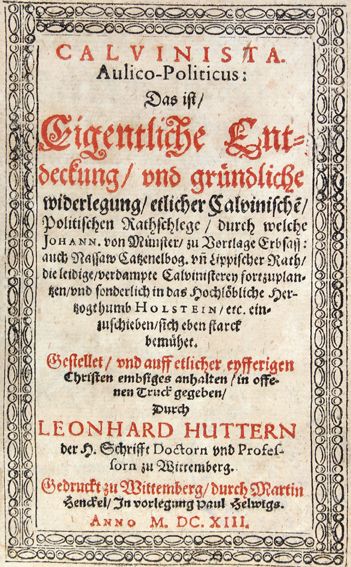 CALVINISTA.
Aulico-Politicus:
Das ist/
Eigentliche Ent-
deckung/ vnd gründliche
widerlegung/ etlicher Calvinischẽ/
Politischen Rathschlege/ durch welche
JOHANN. von Münster/ zu Vortlage Erbsaß:
auch Nassaw Catzenelbog. vñ Lippischer Rath/
die leidige/ verdampte Calvinisterey fortzuplan-
tzen/ vnd sonderlich in das Hochlöbliche Her-
zogthumb HOLSTEIN/ etc. ein-
zuschieben/ sich eben starck
bemühet.
Gestellet/ vnd auff etlicher eyfferigen
Christen embsiges anhalten/ in offe-
nen Truck gegeben/
Durch
LEONHARD HUTTERN
der H. Schrifft Doctorn vnd Profes-
sorn zu Wittemberg.
Gedruckt zu Wittemberg/ durch Martin
Henckel/ In vorlegung Paul Helwigs.
ANNO M. DC. XIII.